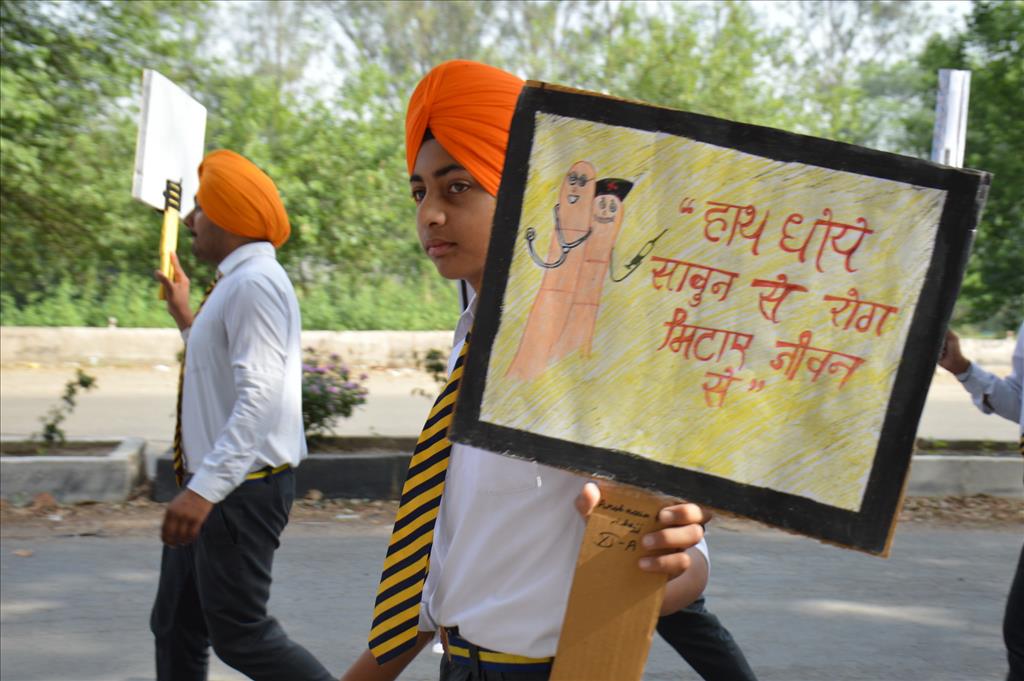 “हाथ धोये
साबुन से रोग
मिटाए जीवन
से”